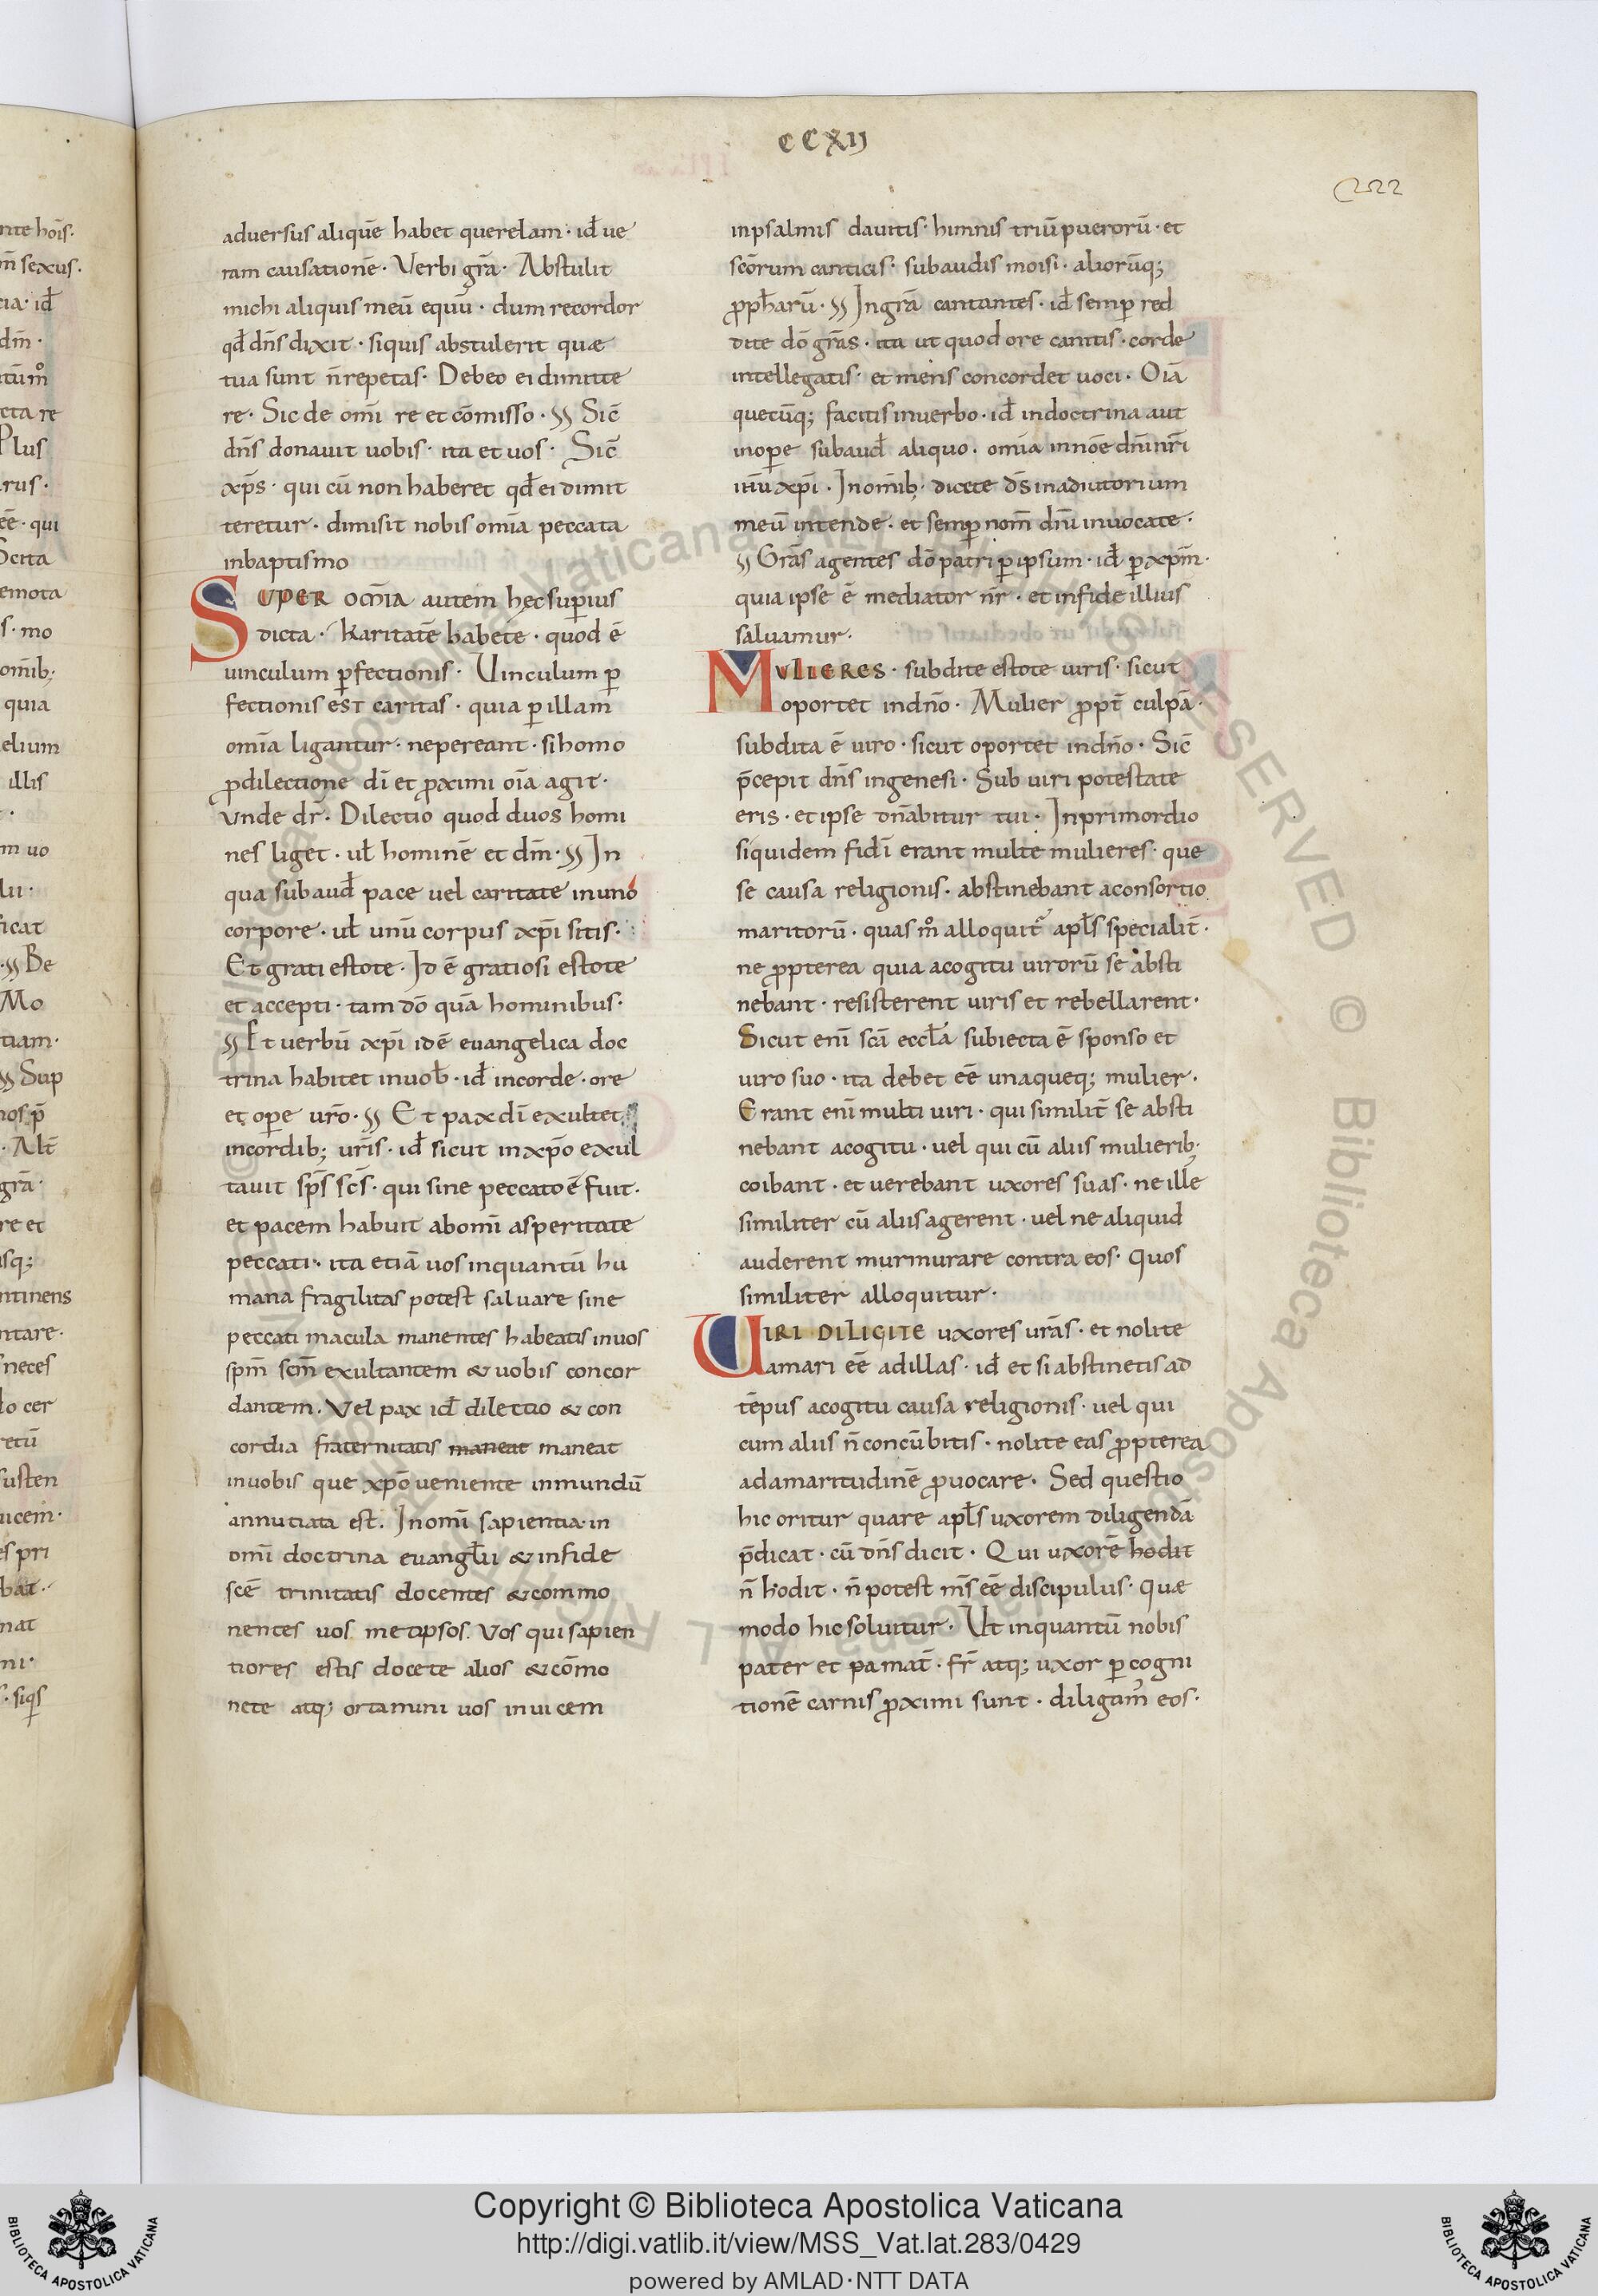 CCXIJ
222
adversus aliquē habet querelam · id̄ ue
ram causationē · Verbi gr̄a · Abstulit
michi aliquis meū equū · dum recordor
qd̄ dn̄s dixit · siquis abstulerit quæ
tua sunt n̄ repetas · Debeo ei dimitte
re · Sic de om̄i re et cōmisso · Sic̄
dn̄s donavit vobis · ita et vos · Sic̄
xp̄s · qui cū non haberet qd̄ ei dimit
teretur · dimisit nobis om̄ia peccata
inbaptismo
SUPER OM̄IA autem hęc sup̄ius
dicta · Karitatē habete · quod ē
uinculum p̄fectionis · Uinculum p̄
fectionis est caritas · quia p̄ illam
om̄ia ligantur · nepereant · si homo
p̄ dilectione dī et p̄ximi oīa agit ·
Vnde dr̄ · Dilectio quod duos homi
nes liget · ul̄ hominē et dm̄ · In
qua subaud̄ pace uel caritate in uno
corpore · ul̄ unū corpus xp̄i sitis ·
Et grati estote · Id ē gratiosi estote
et accepti · tam dō quā hominibus ·
Et verbū xp̄i id ē evangelica doc
trina habitet in uob̄ · id̄ incorde · ore
et op̄e ur̄o · Et pax dī exultet
incordib; ur̄is · id̄ sicut in xp̄o exul
tavit sp̄s sc̄s · qui sine peccato ē fuit ·
et pacem habuit abom̄i asperitate
peccati · ita etiā uos inquantū hu
mana fragilitas potest saluare sine
peccati macula manentes habeatis inuos
sp̄m sc̄m exultantem & uobis concor
dantem. Vel pax id̄ dilectio & con
cordia fraternitatis maneat maneat
inuobis que xp̄o veniente inmundū
annutiata est. In om̄i sapientia in
om̄i doctrina evangl̄ii & infide
scē trinitatis docentes & commo
nentes uos metipsos. Vos qui sapien
tiores estis docete alios & cōmo
nete atq; ortamini uos inuicem
inpsalmis dauitis · himnis triū puerorū · et
sc̄orum canticis · subaudis moisi · aliorūq;
p̄pharū · In gr̄a cantantes · id̄ semp̄ red
dite dō gr̄as · ita ut quod ore canitis · corde
intellegatis · et mens concordet uoci · Oīa
quecūq; facitis inuerbo · id̄ indoctrina aut
inop̄e subaud̄ aliquo · om̄ia in nōe dn̄i nr̄i
ih̄u xp̄i · In om̄ib; dicite dˉs inadiutorium
meū intende · et semp̄ nom̄ dn̄i inuocate ·
Gr̄as agentes dō patri p̄ ipsum · id̄ p̄ xp̄m ·
quia ipse ē mediator nr̄ · et infide illius
saluamur ·
MULIERES · subdite estote uiris · sicut
oportet indn̄o · Mulier p̄pt̄ culpā ·
subdita ē uiro · sicut oportet indn̄o · Sic̄
p̄cepit dn̄s ingenesi · Sub uiri potestate
eris · et ipse dn̄abitur tui · Inprimordio
siquidem fidī erant multe mulieres · que
se causa religionis · abstinebant aconsortio
maritorū · quas m̊ alloquit̄ apl̄s specialit̄ ·
ne p̄pterea quia acogitu uirorū se absti
nebant · resisterent uiris et rebellarent ·
Sicut enī sc̄a eccl̄a subiecta ē sponso et
uiro suo · ita debet eē unaqueq; mulier ·
Erant enī multi uiri · qui similit̄ se absti
nebant acogitu · uel qui cū aliis mulierib;
coibant · et uerebant uxores suas · ne ille
similiter cū aliis agerent · uel ne aliquid
auderent murmurare contra eos · quos
similiter alloquitur ·
UIRI DILIGITE uxores ur̄as · et nolite
amari eē adillas · id̄ et si abstinetis ad
tēpus acogitu causa religionis · uel qui
cum aliis n̄ concūbitis · nolite eas p̄pterea
adamaritudinē p̄uocare · Sed questio
hic oritur quare apl̄s uxorem diligendā
p̄dicat · cū dn̄s dicit · Qui uxorē hodit
n̄ hodit · n̄ potest m̄s eē discipulus · quæ
modo hic soluitur · Ut inquantū nobis
pater et pamat̄ · fr̄ atq; uxor p̄ cogni
tionē carnis p̄ximi sunt · diligam̄ eos ·
Copyright © Biblioteca Apostolica Vaticana
http://digi.vatlib.it/view/MSS_Vat.lat.283/0429
powered by AMLAD·NTT DATA
BIBLIOTECA APOSTOLICA VATICANA
BIBLIOTECA APOSTOLICA VATICANA